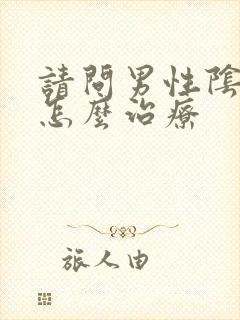 請問男性陰
怎麼治療
旅人由